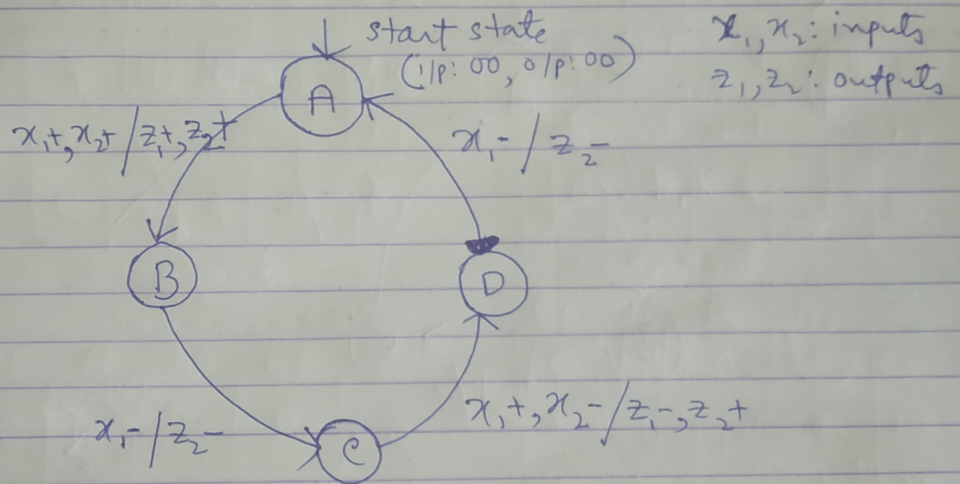 start state
(i/p: 00, o/p: 00)
x1, x2: inputs
z1, z2: outputs
A
x1+, x2+ / z1+, z2+
x1- / z2-
B
D
x1- / z2-
x1+, x2- / z1-, z2+
C